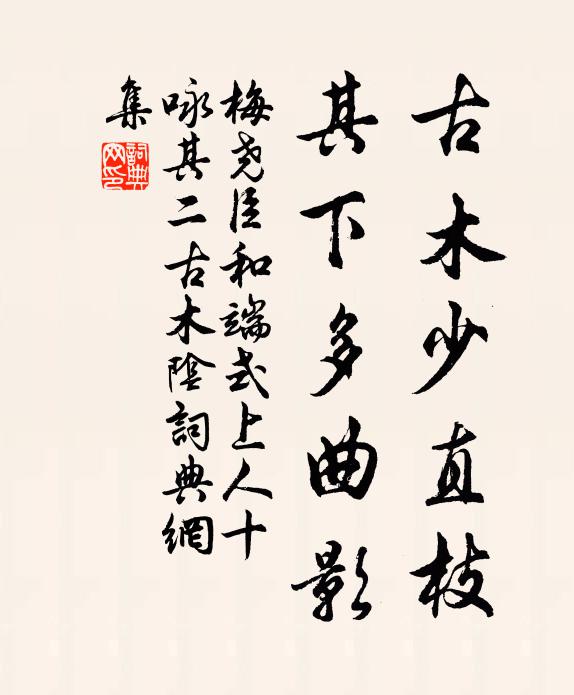 古木少直枝
其下多曲影
梅尧臣和端式上人十
咏其二古木陰詞典網
集
詞典
网印